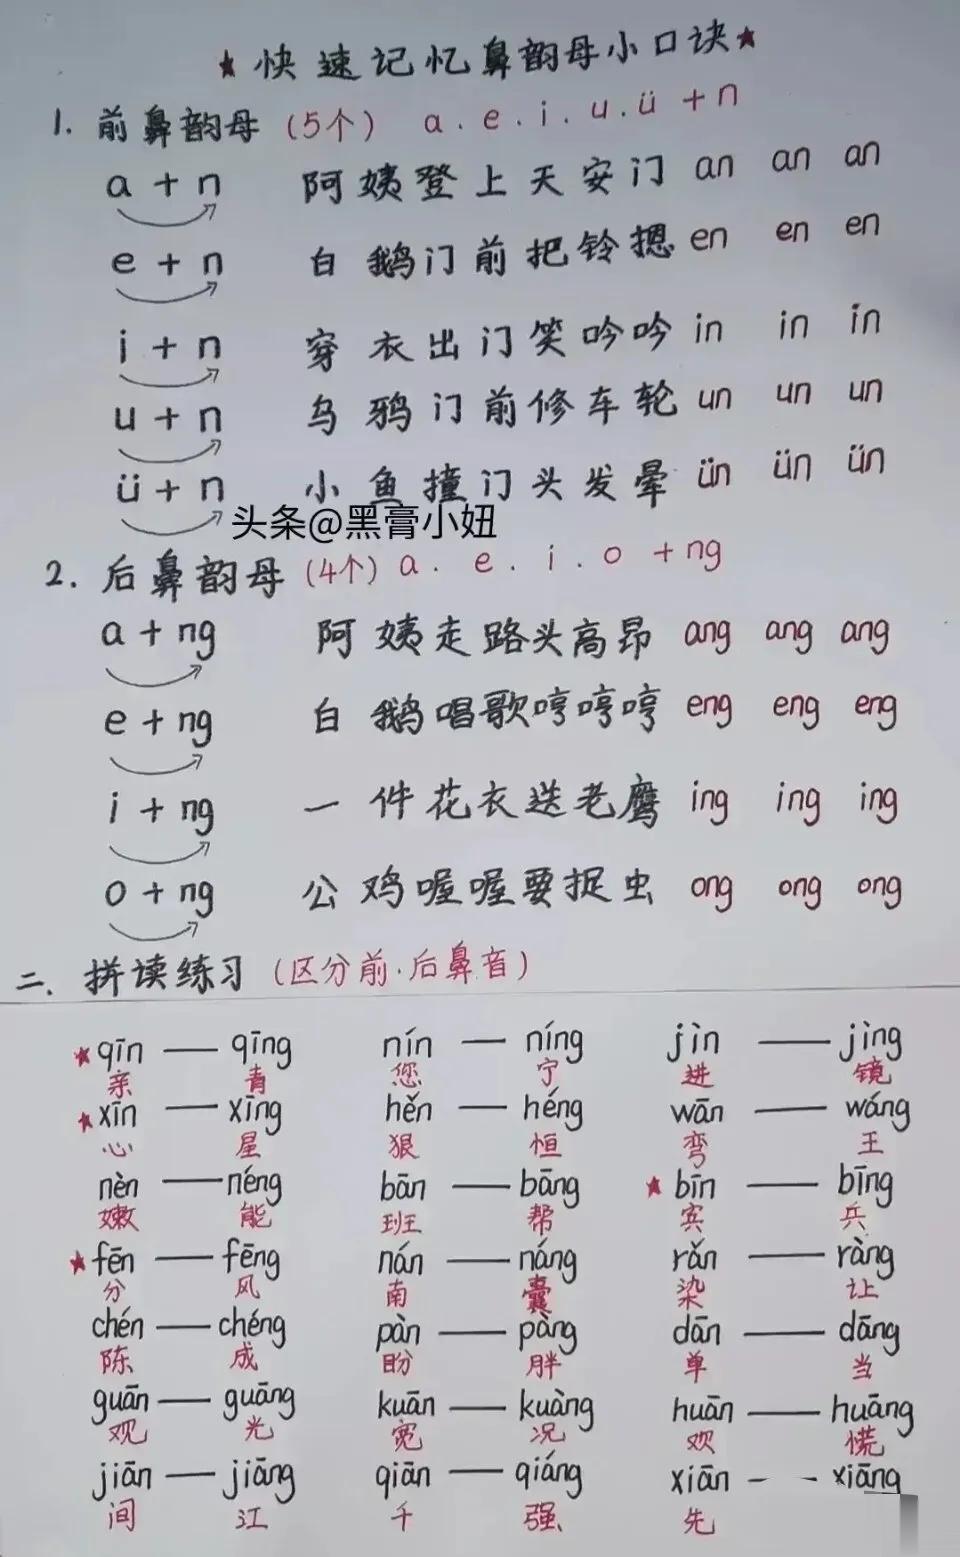 ★快速记忆鼻韵母小口诀★
1. 前鼻韵母（5个） a.e.i.u.ü+n
a+n 阿姨登上天安门 an an an
e+n 白鹅门前把铃摁 en en en
i+n 穿衣出门笑吟吟 in in in
u+n 乌鸦门前修车轮 un un un
ü+n 小鱼撞门头发晕 ün ün ün
头条@黑膏小妞
2. 后鼻韵母（4个） a.e.i.o+ng
a+ng 阿姨走路头高昂 ang ang ang
e+ng 白鹅唱歌哼哼哼 eng eng eng
i+ng 一件花衣送老鹰 ing ing ing
o+ng 公鸡喔喔要捉虫 ong ong ong
二. 拼读练习（区分前.后鼻音）
★qīn — qīng nín — níng jìn — jìng
亲 青 您 宁 进 镜
★xīn — xīng hěn — héng wān — wáng
心 星 狠 恒 弯 王
nèn — néng bān — bāng ★bīn — bīng
嫩 能 班 帮 宾 兵
★fēn — fēng nán — náng rǎn — ràng
分 风 南 囊 染 让
chén — chéng pàn — pàng dān — dāng
陈 成 盼 胖 单 当
guān — guāng kuān — kuàng huān — huāng
观 光 宽 况 欢 慌
jiān — jiāng qiān — qiáng xiān — xiāng
间 江 千 强 先